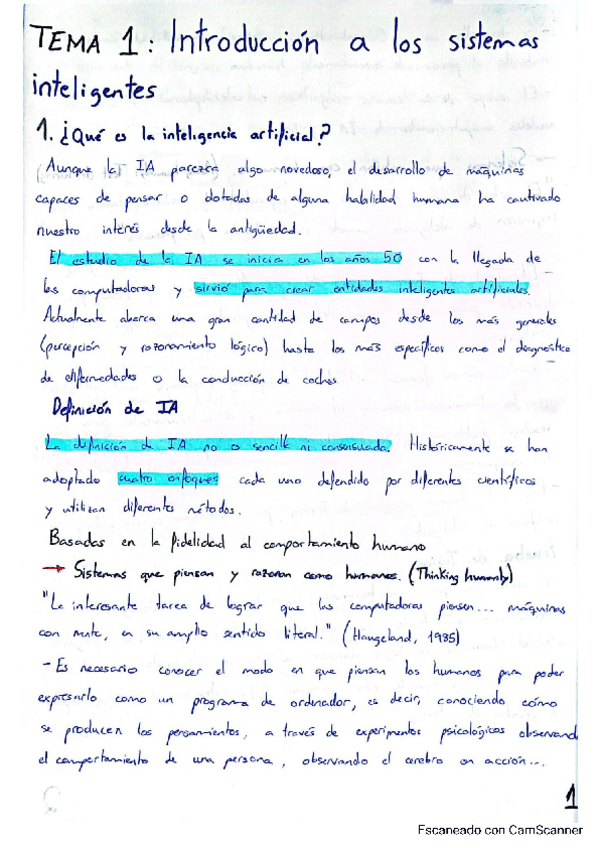 TEMA 1: Introducción a los sistemas
inteligentes
1. ¿Qué es la inteligencia artificial?
Aunque la IA parezca algo novedoso, el desarrollo de máquinas
capaces de pensar o dotadas de alguna habilidad humana ha cautivado
nuestro interés desde la antigüedad.
El estudio de la IA se inicia en los años 50 con la llegada de
las computadoras y sirvió para crear entidades inteligentes artificiales.
Actualmente abarca una gran cantidad de campos desde los más generales
(percepción y razonamiento lógico) hasta los más específicos como el diagnóstico
de enfermedades o la conducción de coches
Definición de IA
La definición de IA no es sencilla ni consensuada. Históricamente se han
adoptado cuatro enfoques cada uno defendido por diferentes científicos
y utilizan diferentes métodos.
Basadas en la fidelidad al comportamiento humano
→ Sistemas que piensan y razonan como humanos. (Thinking humanly)
"La interesante tarea de lograr que las computadoras piensen... máquinas
con mente, en su amplio sentido literal." (Haugeland, 1985)
- Es necesario conocer el modo en que piensan los humanos para poder
expresarlo como un programa de ordenador, es decir, conociendo cómo
se producen los pensamientos, a través de experimentos psicológicos observando
el comportamiento de una persona, observando el cerebro en acción...
1
Escaneado con CamScanner